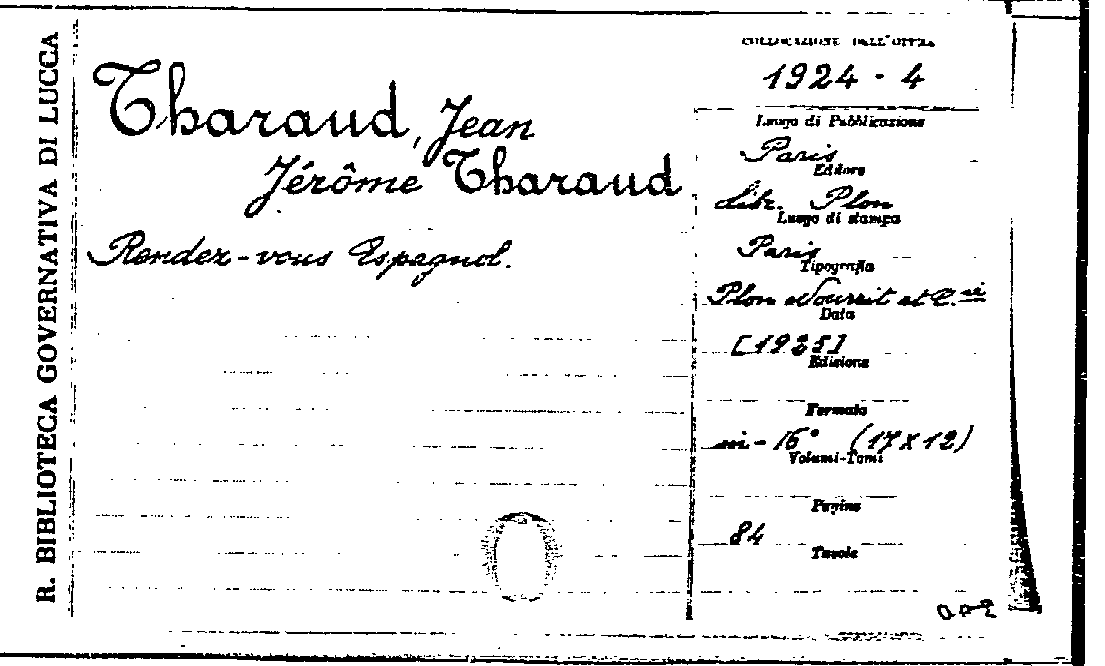 R. BIBLIOTECA GOVERNATIVA DI LUCCA
Tharaud, Jean
Jérôme Tharaud
Rendez-vous Espagnol.
COLLOCAZIONE DELL'OPERA
1924 - 4
Luogo di Pubblicazione
Paris
Editore
Libr. Plon
Luogo di stampa
Paris
Tipografia
Plon Nourrit et C.ie
Data
[1925]
Edizione
Formato
in-16° (17x12)
Volumi-Tomi
Pagine
84
Tavole